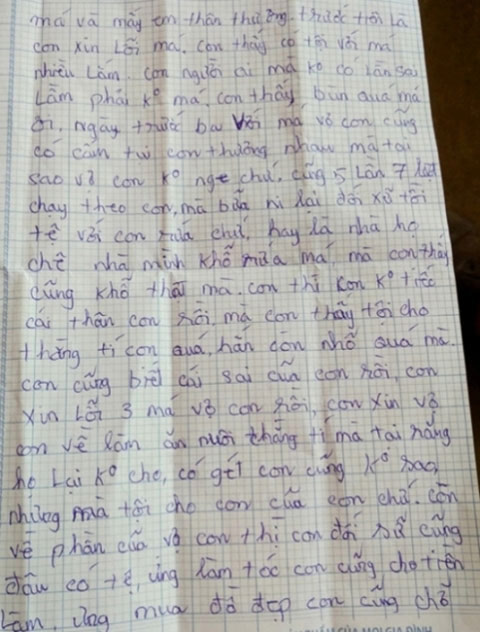 má và mấy em thân thương. trước tiên là
con xin lỗi má. con thấy có tội với má
nhiều lắm. con người ai mà k° có lần sai
lầm phải k° má. con thấy bùn quá má
ơi, ngày trước ba với má vỏ con cũng
có cấm tụi con thương nhau mà tại
sao vỏ con k° nge chứ, cũng 5 lần 7 lượt
chạy theo con, mà bữa ni lại đối xử tồi
tệ với con rứa chứ, hay là nhà họ
chê nhà mình khổ rứa má, mà con thấy
cũng khổ thật mà. con thì con k° tiếc
cái thân con rồi, mà con thấy tội cho
thằng tí con quá, hắn còn nhỏ quá mà.
con cũng biết cái sai của con rồi, con
xin lỗi 3 má vợ con rồi, con xin vợ
con về làm ăn nuôi thằng tí mà tại răng
họ lại k° cho, có gét con cũng k° sao
nhưng mà tội cho con của con chứ. còn
về phần của vợ con thì con đối sử cũng
đâu có tệ, ưng làm tóc con cũng cho tiền
làm, ưng mua đồ đẹp con cũng chở